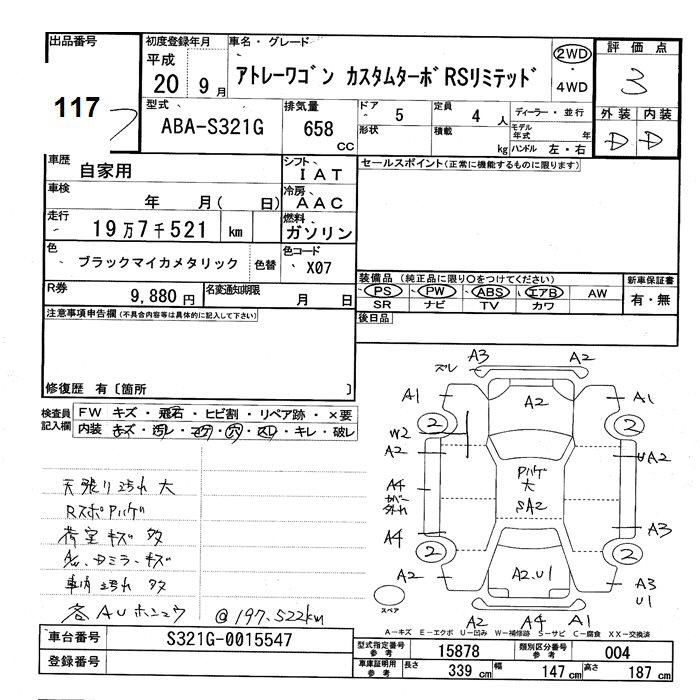 出品番号
117
初度登録年月
平成
20 9月
車名・グレード
アトレーワゴン カスタムターボRSリミテッド
2WD
・
4WD
評価点
3
型式
ABA-S321G
排気量
658
cc
ドア
5
定員
4人
形状
積載
kg
ディーラー・並行
モデル年式
年
ハンドル 左・右
外装 内装
D D
車歴
自家用
シフト
IAT
セールスポイント(正常に機能するものに限ります)
車検
年 月( 日)
冷房
AAC
走行
19万7千521 km
燃料
ガソリン
色
ブラックマイカメタリック
色替
色コード
X07
R券
9,880円
名変通知期限
月 日
装備品 (純正品に限り○をつけてください)
PS PW ABS エアB AW
SR ナビ TV カワ
新車保証書
有・無
注意事項申告欄(不具合内容等は具体的に記入して下さい)
後日品
修復歴 有〔箇所 〕
検査員記入欄
FW キズ・飛石・ヒビ割・リペア跡・×要
内装 キズ・汚レ・コゲ・穴・スレ・キレ・破レ
天張り汚れ 大
RスポPハゲ
荷室キズ 多
車内汚れ 多
各AUホシュウ @197,522km
ズレ A3 A2
A1 A2 A1
2 2
W2
A2 A2
Pハゲ
大
A4
カバー
外れ
SA2
A4 A3
2 2
A2 A2.U1 A3
U1
スペア
A2 A4 A1
A-キズ E-エクボ U-凹み W-補修跡 S-サビ C-腐食 XX-交換済
車台番号
S321G-0015547
登録番号
型式指定番号
参考
15878
類別区分番号
参考
004
車庫証明用
参考
長さ 339cm 幅 147cm 高さ 187cm